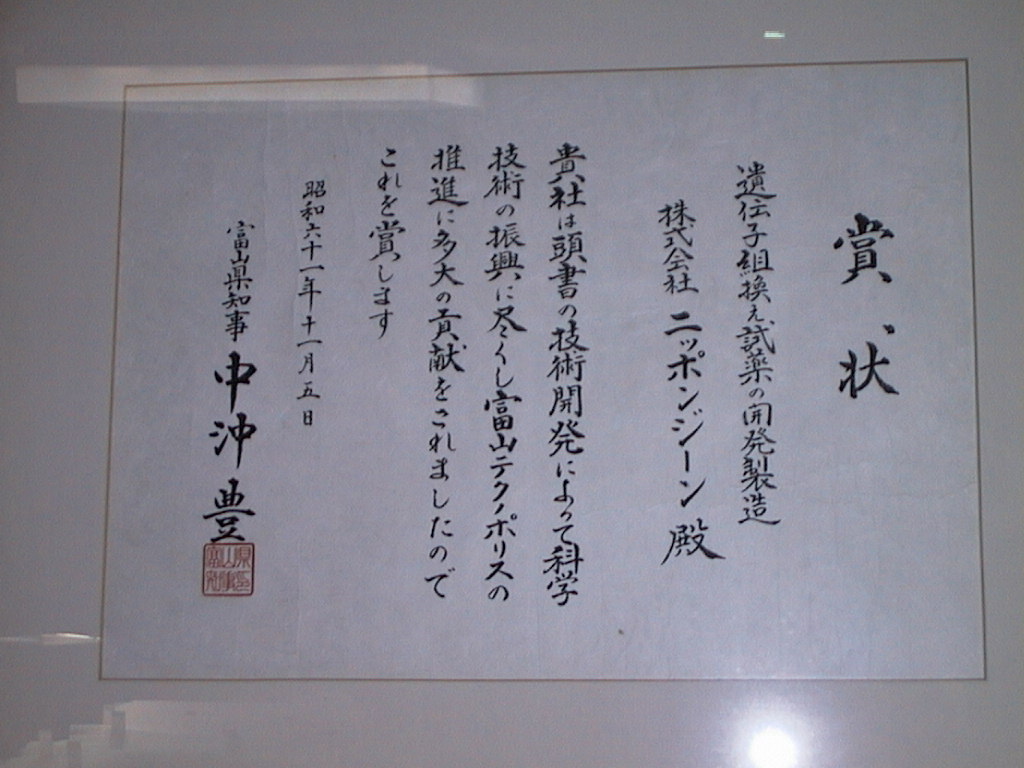 賞状
遺伝子組換え試薬の開発製造
株式会社 ニッポンジーン 殿
貴社は頭書の技術開発によって科学
技術の振興に尽くし富山テクノポリスの
推進に多大の貢献をされましたので
これを賞します
昭和六十一年十一月五日
富山県知事 中沖豊